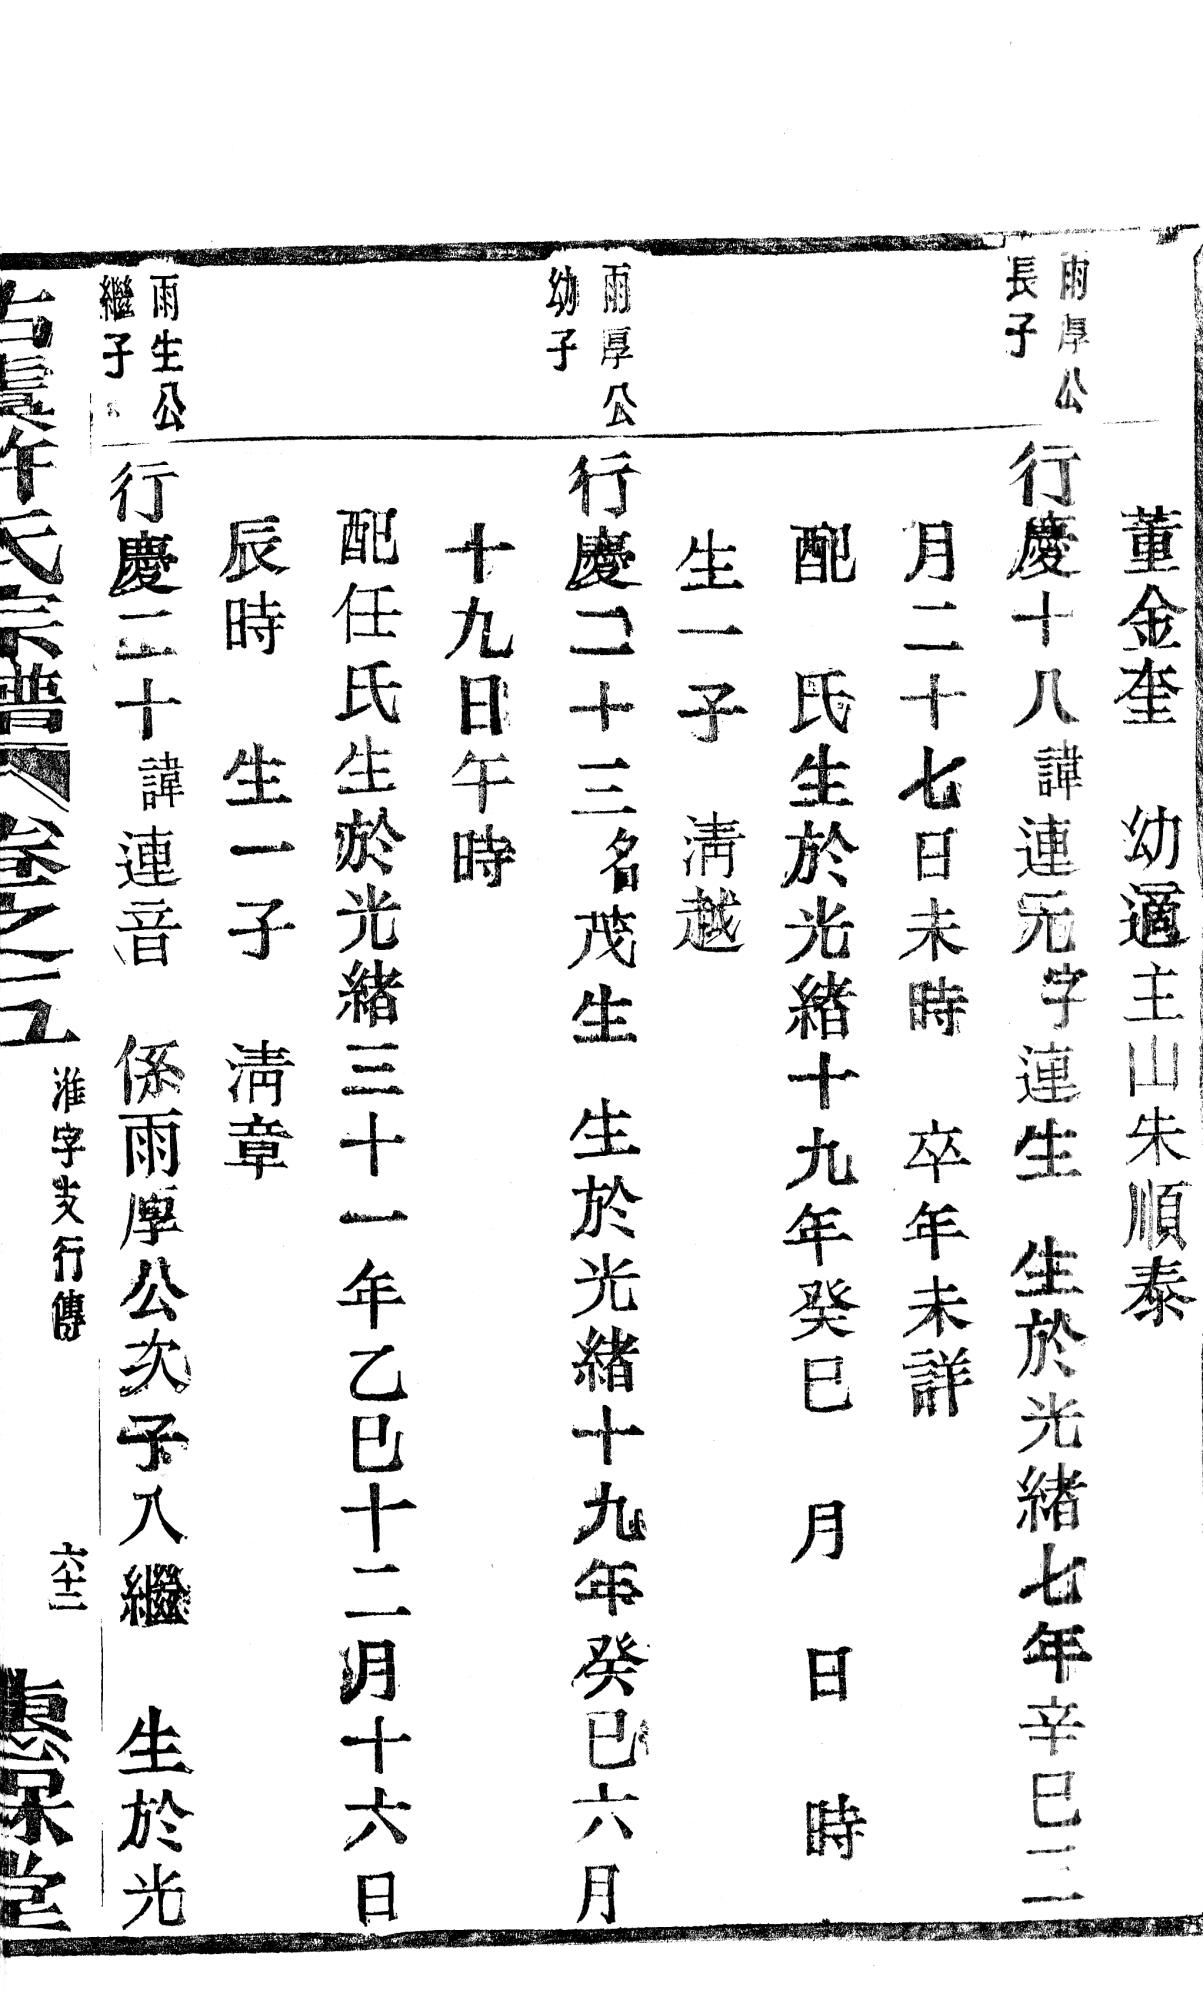 董金奎　幼適主山朱順泰
雨厚公
長子
行慶十八諱連元字連生　生於光緒七年辛巳三
月二十七日未時　卒年未詳
配　氏生於光緒十九年癸巳　月　日　時
生一子　淸越
雨厚公
幼子
行慶二十三名茂生　生於光緒十九年癸巳六月
十九日午時
配任氏生於光緒三十一年乙巳十二月十六日
辰時　生一子　淸章
雨生公
繼子
行慶二十諱連音　係雨厚公次子入繼　生於光
古虞許氏宗譜　卷之二
淮字支行傳
六十二
惠保堂